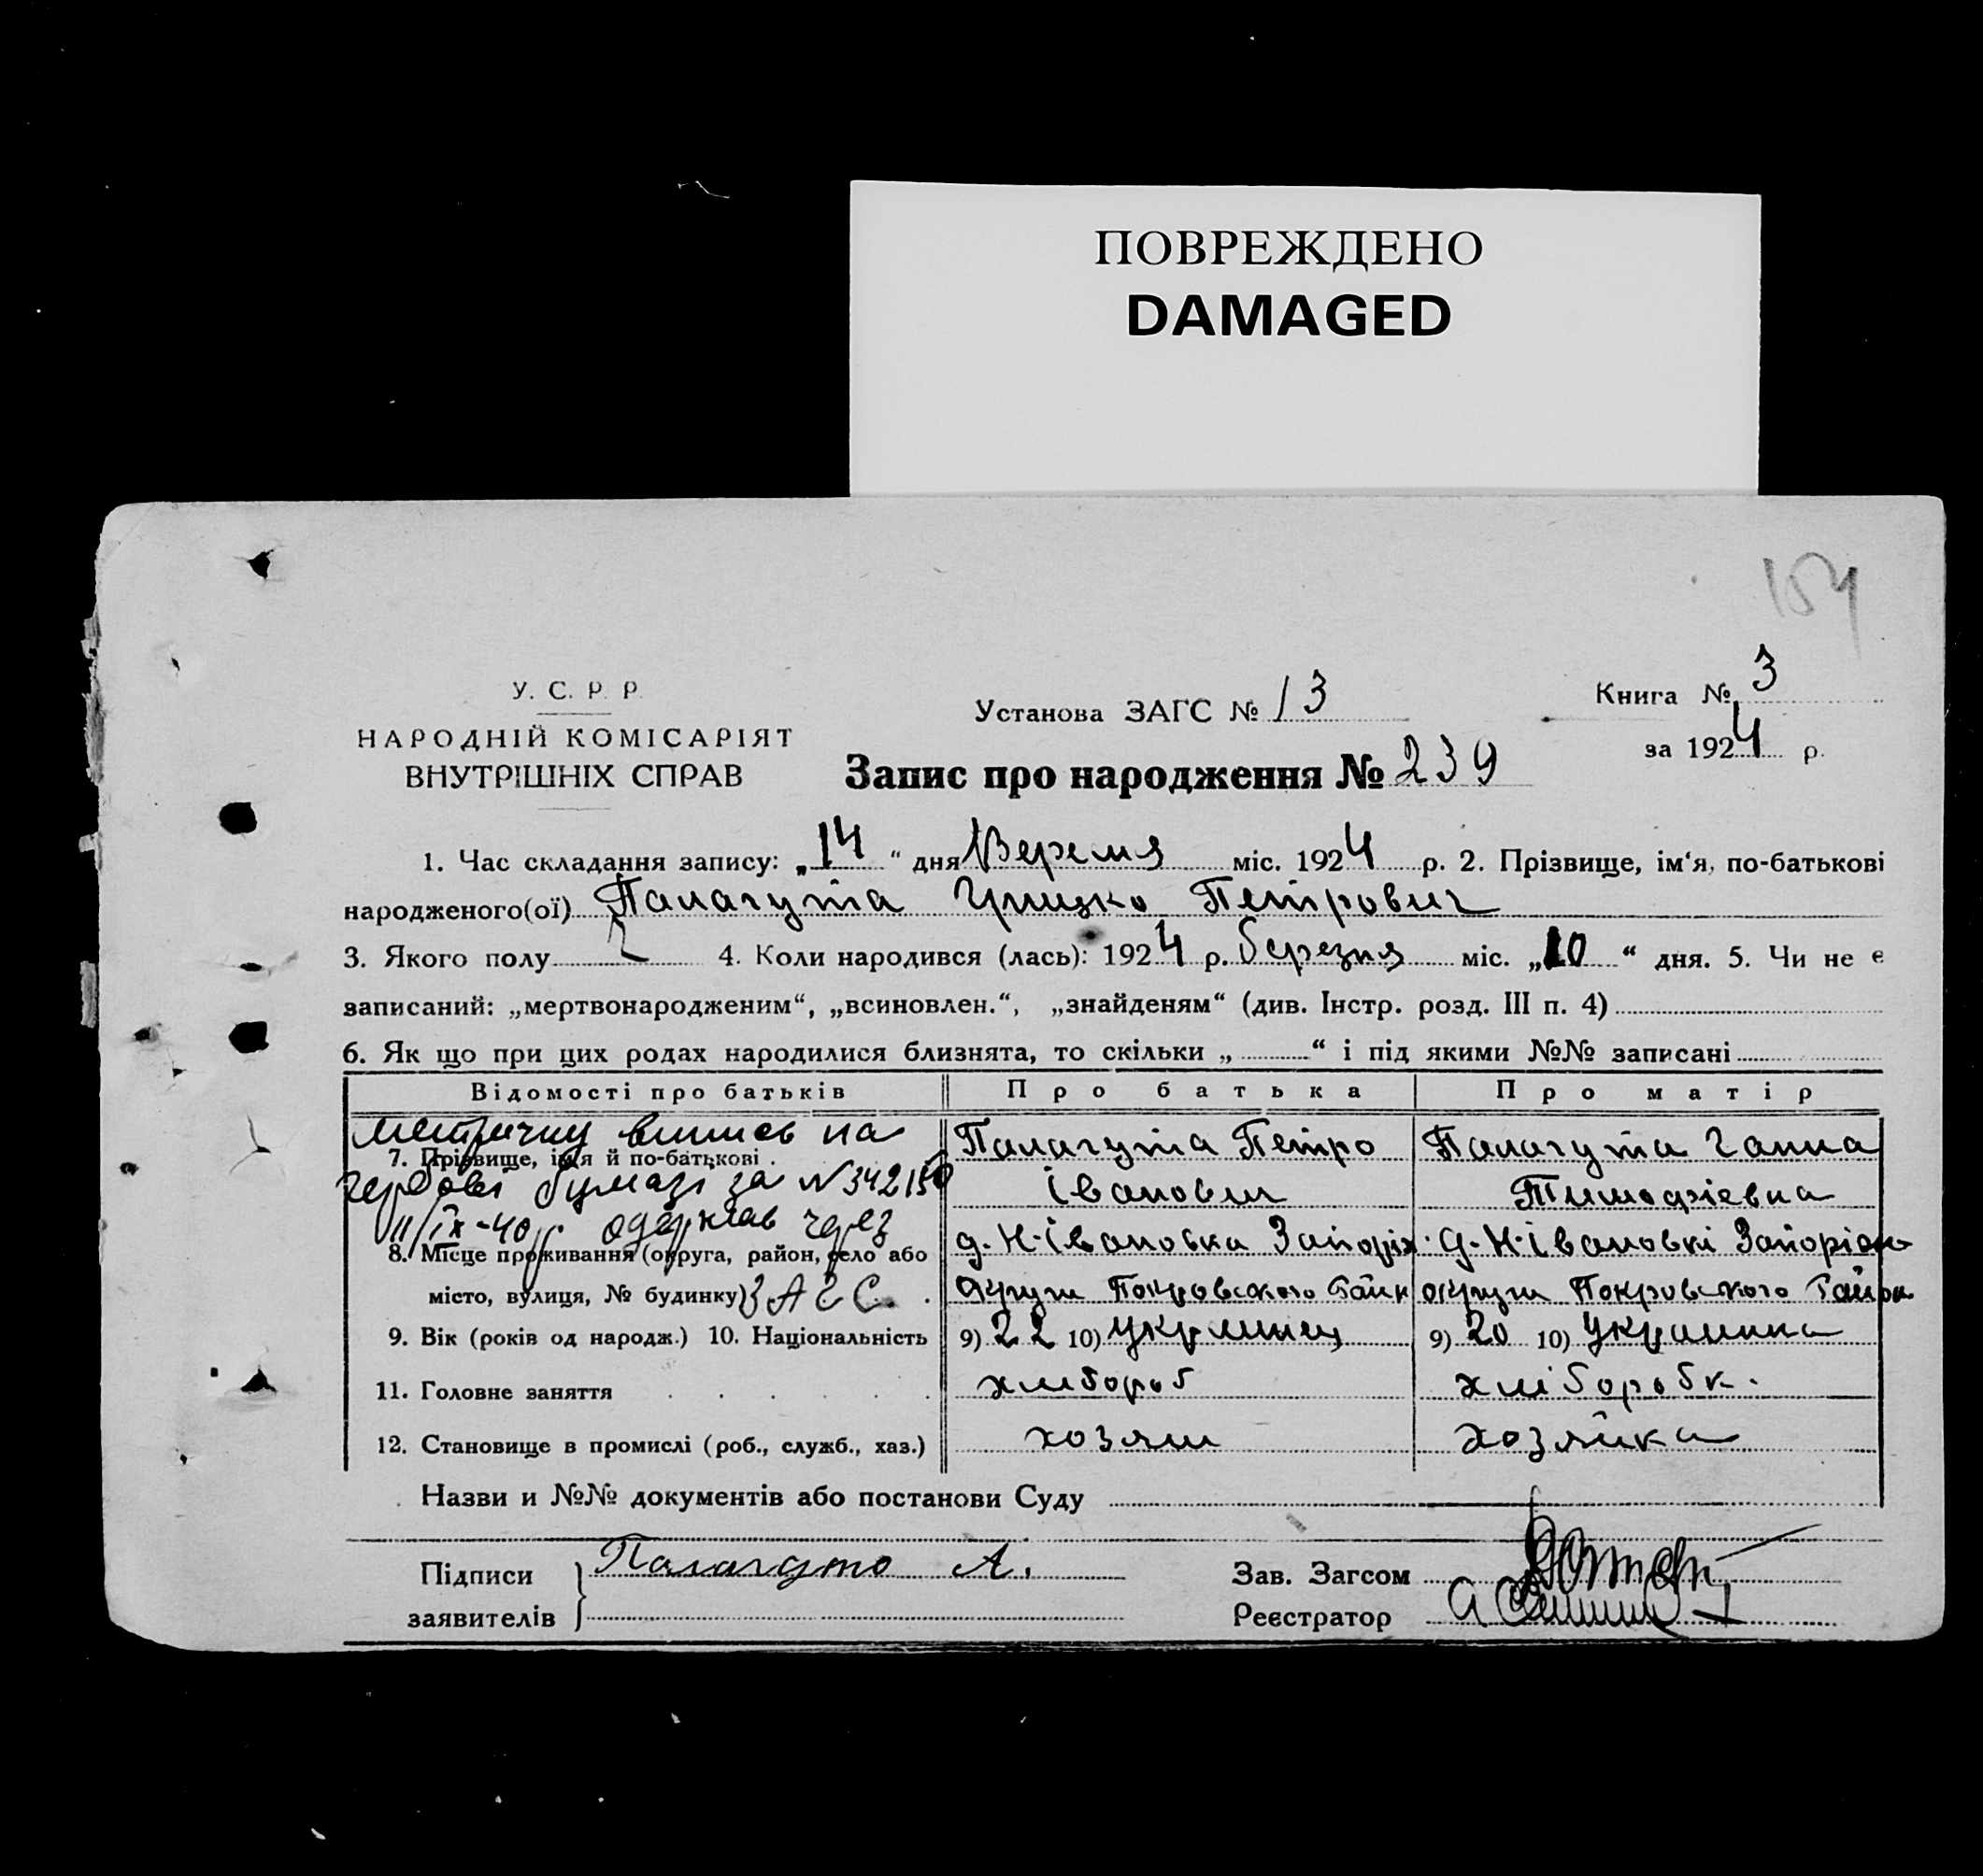 ПОВРЕЖДЕНО
DAMAGED
154
У. С. Р. Р.
НАРОДНІЙ КОМІСАРІЯТ
ВНУТРІШНІХ СПРАВ
Установа ЗАГС № 13
Книга № 3
за 1924 р.
Запис про народження № 239
1. Час складання запису: „14“ дня міс. 1924 р. 2. Прізвище, ім‘я, по-батькові
народженого(ої) Палагута Грицко Петрович
3. Якого полу 4. Коли народився (лась): 1924 р. березня міс. „10“ дня. 5. Чи не є
записаний: „мертвонародженим“, „всиновлен.“, „знайденям“ (див. Інстр. розд. III п. 4)
6. Як що при цих родах народилися близнята, то скільки „ “ і під якими №№ записані
Відомості про батьків Про батька Про матір
метричну випись на
7. Прізвище, ім‘я й по-батькові . Палагута Петро Палагута Ганна
гербовій бумазі за №342150
Іванович Тимофіевна
11/IX-40р. одержав через
8. Місце проживання (округа, район, село або д. Н-Івановка Запоріж. д. Н-Івановкі Запоріж
місто, вулиця, № будинку) ЗАГС. округи Покровского Округи Покровского Район
9. Вік (років од народж.) 10. Національність 9) 22 10) Українец 9) 20 10) Українка
11. Головне заняття . . . . . хлібороб хліборобк.
12. Становище в промислі (роб., служб., хаз.) хозяин хозяйка
Назви и №№ документів або постанови Суду
Підписи
заявителів
Палагуто А.
Зав. Загсом
Реєстратор